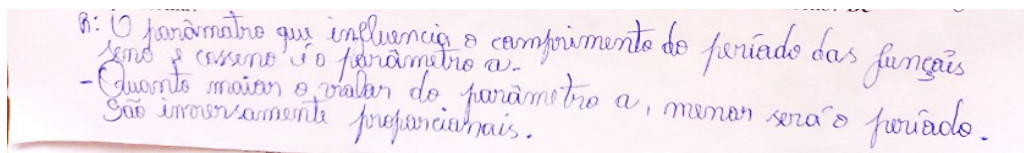 R: O parâmetro que influencia o comprimento do período das funções
seno e cosseno é o parâmetro a.
- Quanto maior o valor do parâmetro a, menor será o período.
São inversamente proporcionais.